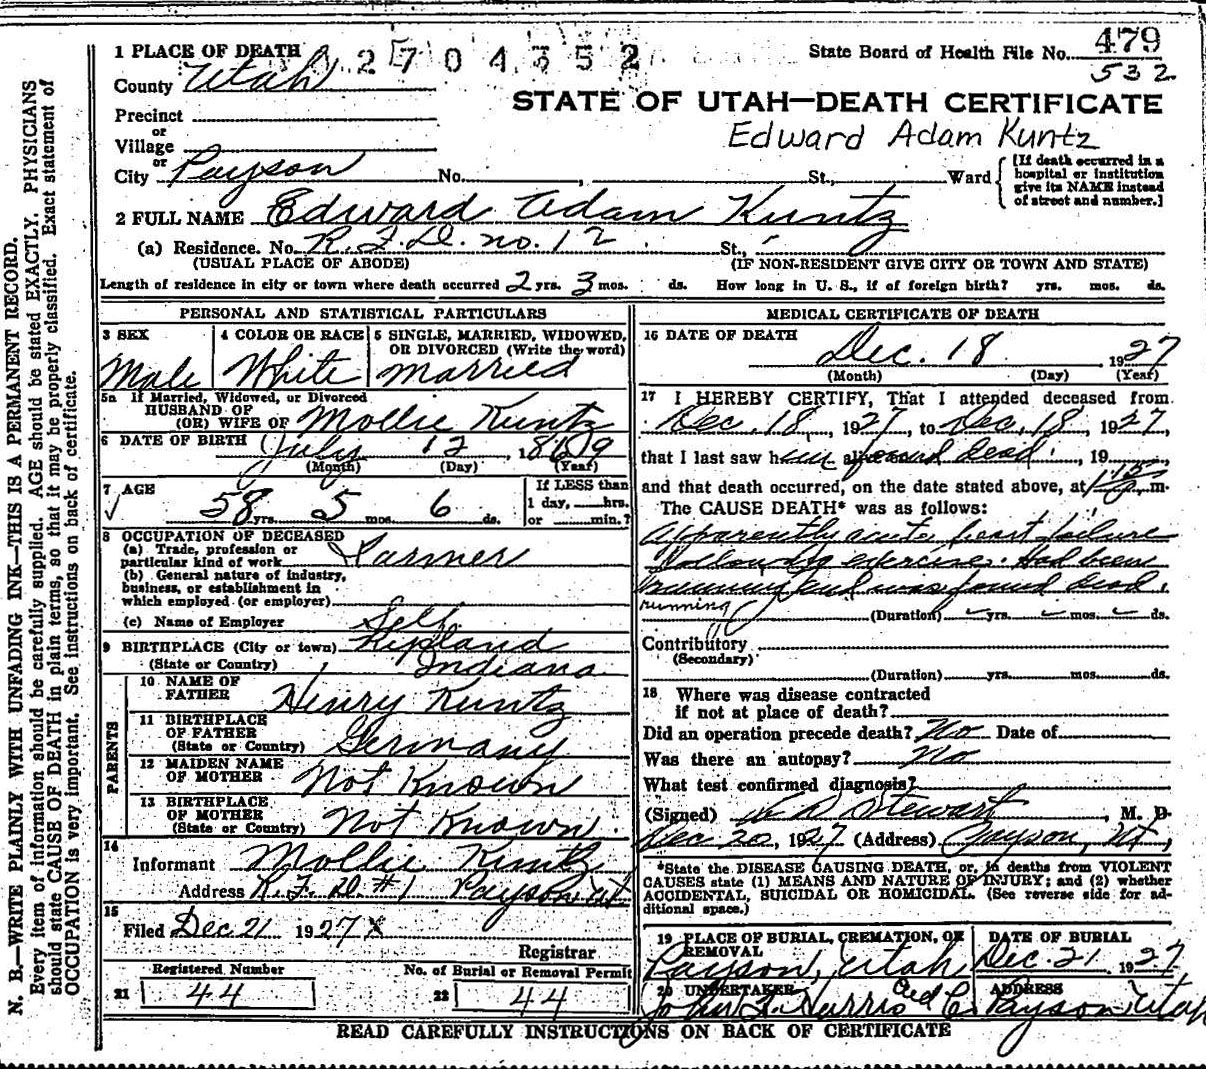 1 PLACE OF DEATH
2704352
State Board of Health File No. 479
532
County Utah
STATE OF UTAH—DEATH CERTIFICATE
Precinct
or
Edward Adam Kuntz
Village
or
City Payson No. , St., Ward
[If death occurred in a
hospital or institution
give its NAME instead
of street and number.]
2 FULL NAME Edward Adam Kuntz
(a) Residence. No. R.F.D. no. 12 St.,
(USUAL PLACE OF ABODE) (IF NON-RESIDENT GIVE CITY OR TOWN AND STATE)
Length of residence in city or town where death occurred 2 yrs. 3 mos. ds. How long in U. S., if of foreign birth? yrs. mos. ds.
PERSONAL AND STATISTICAL PARTICULARS
3 SEX
Male
4 COLOR OR RACE
White
5 SINGLE, MARRIED, WIDOWED,
OR DIVORCED (Write the word)
Married
5a If Married, Widowed, or Divorced
HUSBAND OF
(OR) WIFE OF Mollie Kuntz
6 DATE OF BIRTH July 12, 1869
(Month) (Day) (Year)
7 AGE
58 yrs. 5 mos. 6 ds.
If LESS than
1 day, hrs.
or min.?
8 OCCUPATION OF DECEASED
(a) Trade, profession or
particular kind of work Farmer
(b) General nature of industry,
business, or establishment in
which employed (or employer)
(c) Name of Employer Self
9 BIRTHPLACE (City or town)
(State or Country) Indiana
PARENTS
10 NAME OF
FATHER Henry Kuntz
11 BIRTHPLACE
OF FATHER
(State or Country) Germany
12 MAIDEN NAME
OF MOTHER Not Known
13 BIRTHPLACE
OF MOTHER
(State or Country) Not Known.
14
Informant Mollie Kuntz
Address R.F.D. #1 Payson Ut
15
Filed Dec 21 1927 x
Registrar
Registered Number
21 44
No. of Burial or Removal Permit
22 44
MEDICAL CERTIFICATE OF DEATH
16 DATE OF DEATH
Dec. 18 1927
(Month) (Day) (Year)
17 I HEREBY CERTIFY, That I attended deceased from
Dec. 18, 1927, to Dec. 18, 1927,
that I last saw him alive found dead. , 19 ,
and that death occurred, on the date stated above, at m.
The CAUSE DEATH* was as follows:
Apparently acute heart failure
following exercise. Had been
running and was found dead.
running
(Duration) yrs. mos. ds.
Contributory
(Secondary)
(Duration) yrs. mos. ds.
18 Where was disease contracted
if not at place of death?
Did an operation precede death? No Date of
Was there an autopsy? No
What test confirmed diagnosis?
(Signed) Stewart, M. D.
Dec 20, 1927 (Address) Payson, Ut,
*State the DISEASE CAUSING DEATH, or, in deaths from VIOLENT
CAUSES state (1) MEANS AND NATURE OF INJURY; and (2) whether
ACCIDENTAL, SUICIDAL OR HOMICIDAL. (See reverse side for ad-
ditional space.)
19 PLACE OF BURIAL, CREMATION, OR
REMOVAL
Payson, Utah
DATE OF BURIAL
Dec. 21 1927
20 UNDERTAKER
John F. Harris
ADDRESS
Payson Utah
READ CAREFULLY INSTRUCTIONS ON BACK OF CERTIFICATE
N. B.—WRITE PLAINLY WITH UNFADING INK—THIS IS A PERMANENT RECORD.
Every item of information should be carefully supplied. AGE should be stated EXACTLY. PHYSICIANS
should state CAUSE OF DEATH in plain terms, so that it may be properly classified. Exact statement of
OCCUPATION is very important. See instructions on back of certificate.